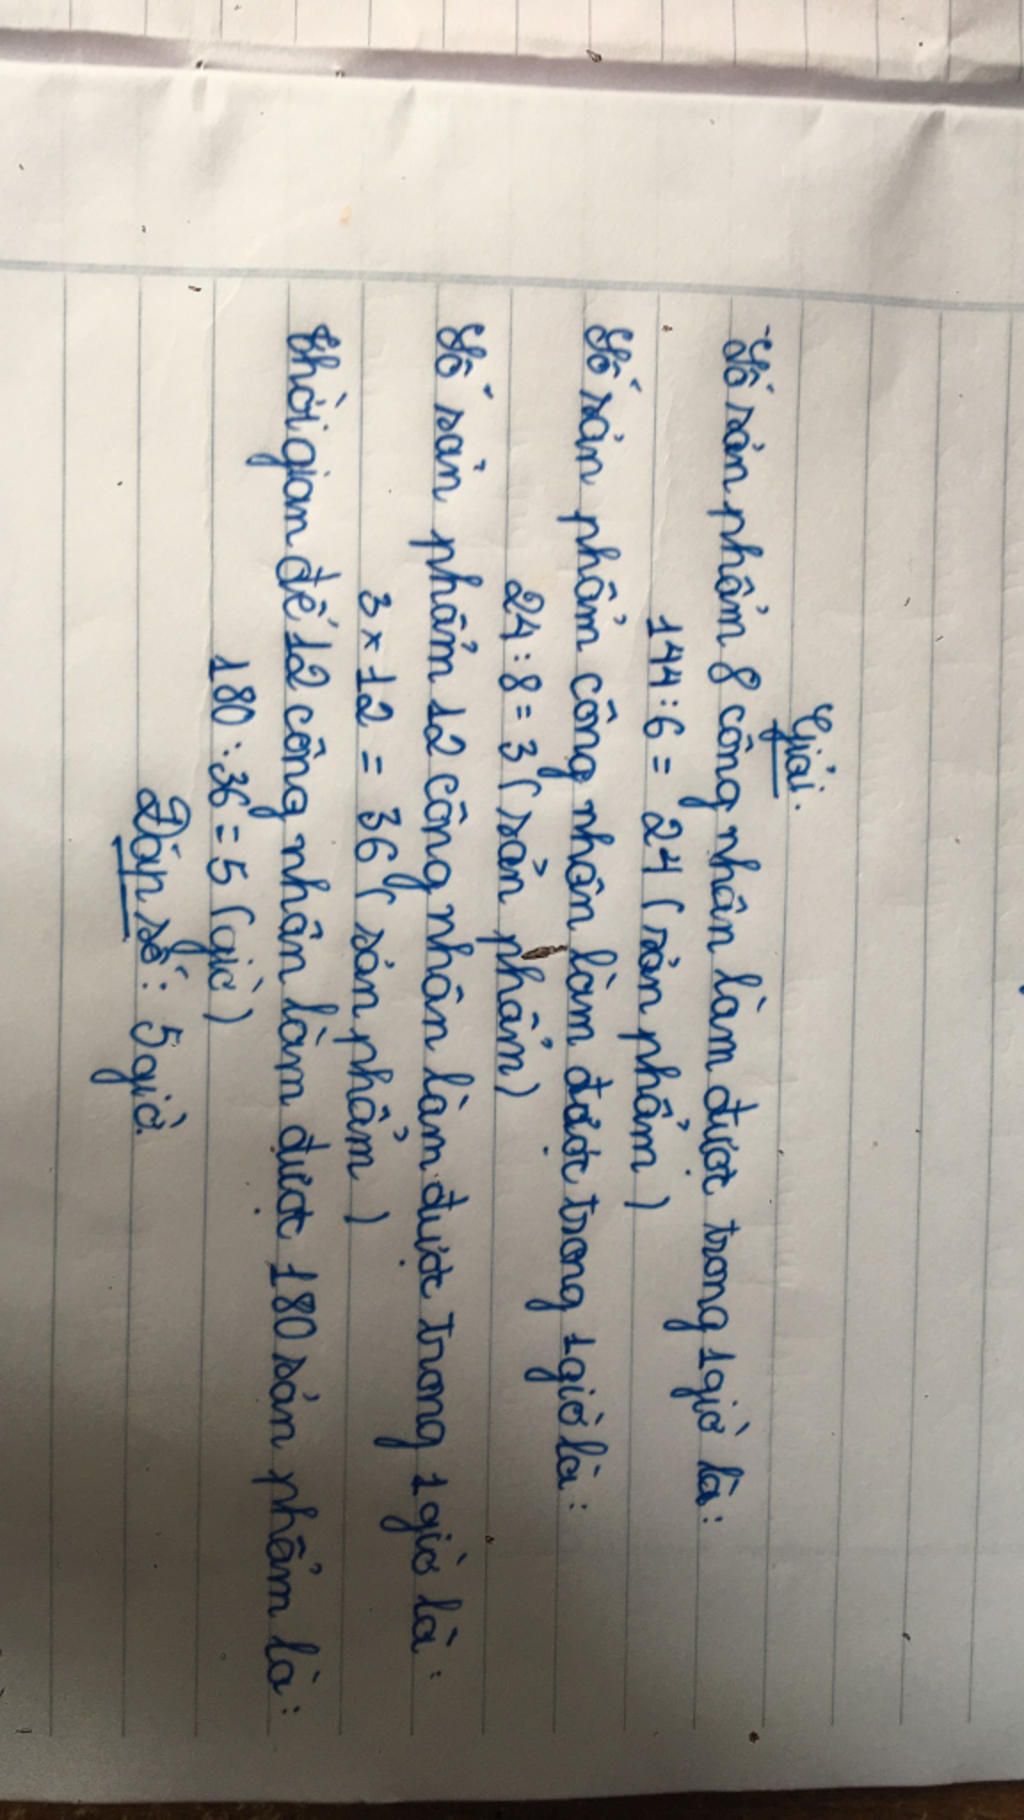 Giải.
Số sản phẩm 8 công nhân làm được trong 1 giờ là:
144 : 6 = 24 (sản phẩm)
Số sản phẩm công nhân làm được trong 1 giờ là:
24 : 8 = 3 (sản phẩm)
Số sản phẩm 12 công nhân làm được trong 1 giờ là:
3 × 12 = 36 (sản phẩm)
Thời gian để 12 công nhân làm được 180 sản phẩm là:
180 : 36 = 5 (giờ)
Đáp số: 5 giờ.